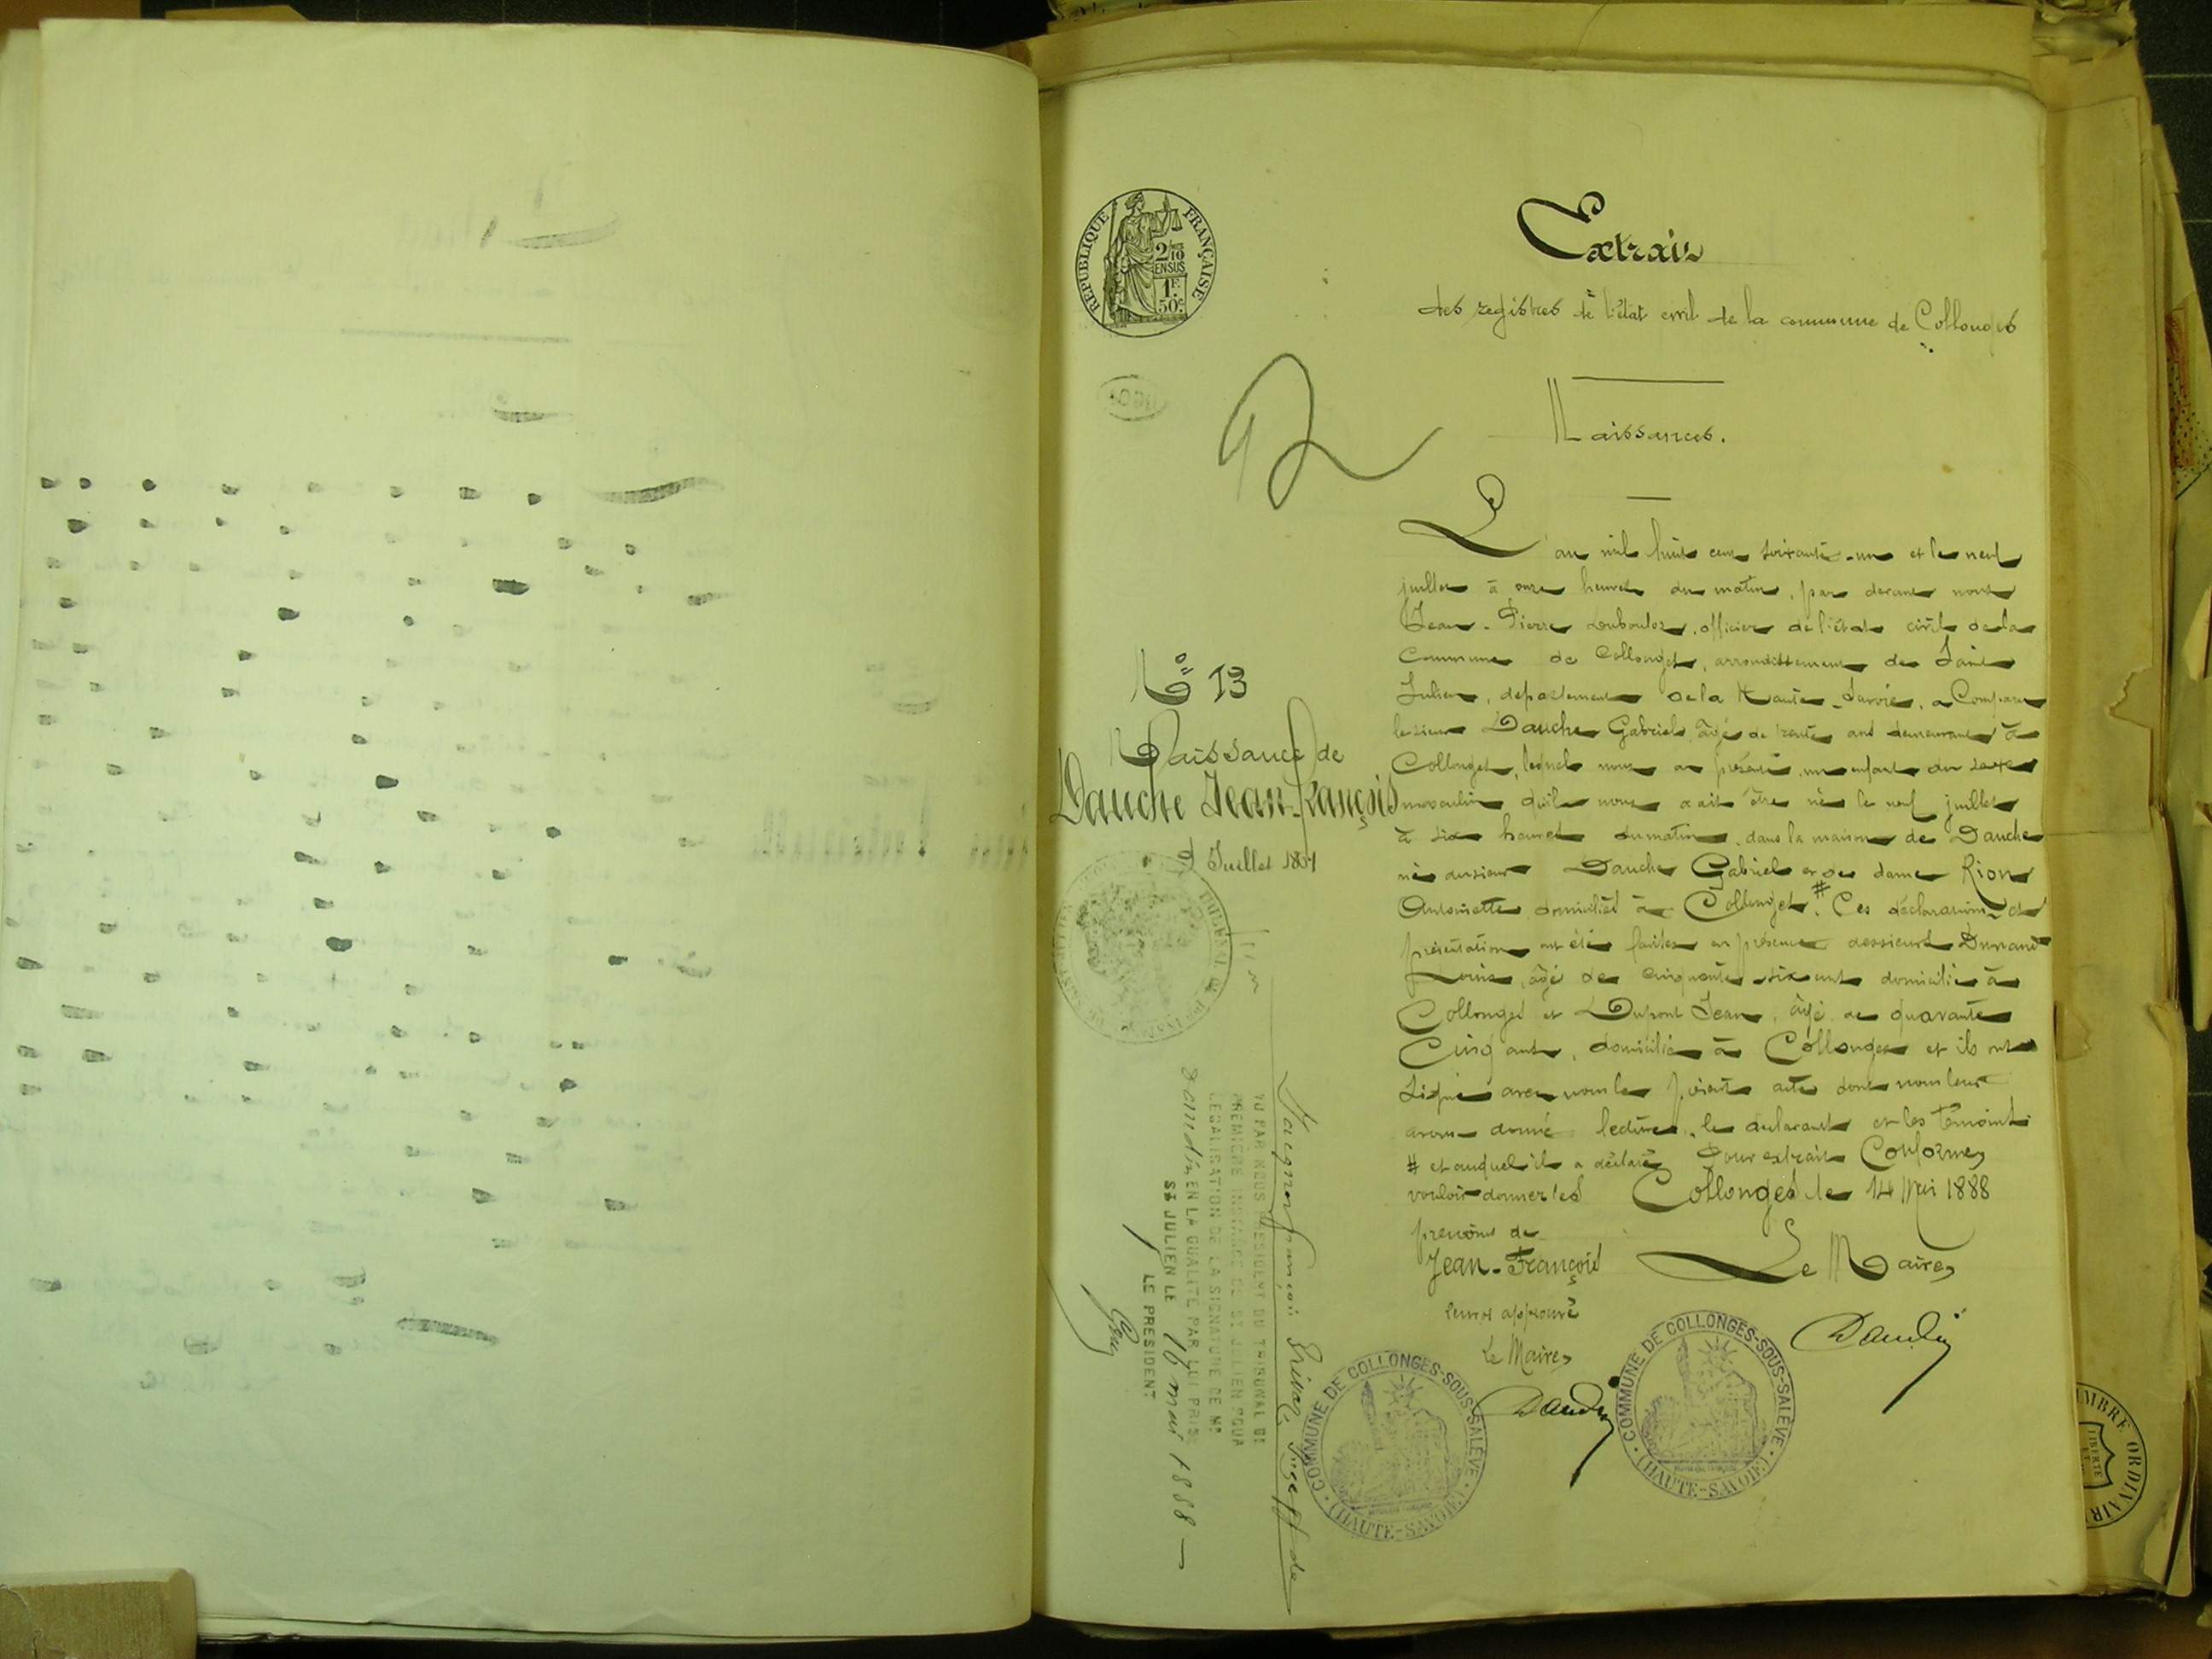 RÉPUBLIQUE FRANÇAISE
2/10 EN SUS
1F. 50c.
Extrait
des registres de l'état civil de la commune de Collonges
Naissances.
L'an mil huit cent soixante-un et le neuf
juillet à onze heures du matin, par devant nous
Jean-Pierre Duboulos, officier de l'état civil de la
Commune de Collonges, arrondissement de Saint
Julien, département de la Haute-Savoie, a Comparu
le sieur Dauche Gabriel, âgé de trente ans demeurant à
Collonges, lequel nous a présenté un enfant du sexe
masculin qu'il nous a dit être né le neuf juillet
à six heures du matin, dans la maison de Dauche
né du sieur Dauche Gabriel et de dame Rion
Antoinette domiciliés à Collonges. # Ces déclaration et
présentation ont été faites en présence des sieurs Durand
Louis, âgé de cinquante-six ans domicilié à
Collonges et Dupont Jean, âgé de quarante
Cinq ans, domicilié à Collonges et ils ont
signé avec nous le présent acte dont nous leur
avons donné lecture, le déclarant et les témoins
# et auquel il a déclaré
vouloir donner les
prénoms de
Jean-François
renvoi approuvé
Le Maire
Daudin
Pour extrait Conforme,
Collonges le 14 Mai 1888
Le Maire,
Daudin
COMMUNE DE COLLONGES-SOUS-SALÈVE
(HAUTE-SAVOIE)
COMMUNE DE COLLONGES-SOUS-SALÈVE
(HAUTE-SAVOIE)
No 13
Naissance de
Dauche Jean-François
9 Juillet 1861
VU PAR NOUS PRÉSIDENT DU TRIBUNAL DE
PREMIÈRE INSTANCE DE ST JULIEN POUR
LÉGALISATION DE LA SIGNATURE DE MR
Daudin EN LA QUALITÉ PAR LUI PRISE
ST JULIEN LE 16 mai 1888
LE PRÉSIDENT